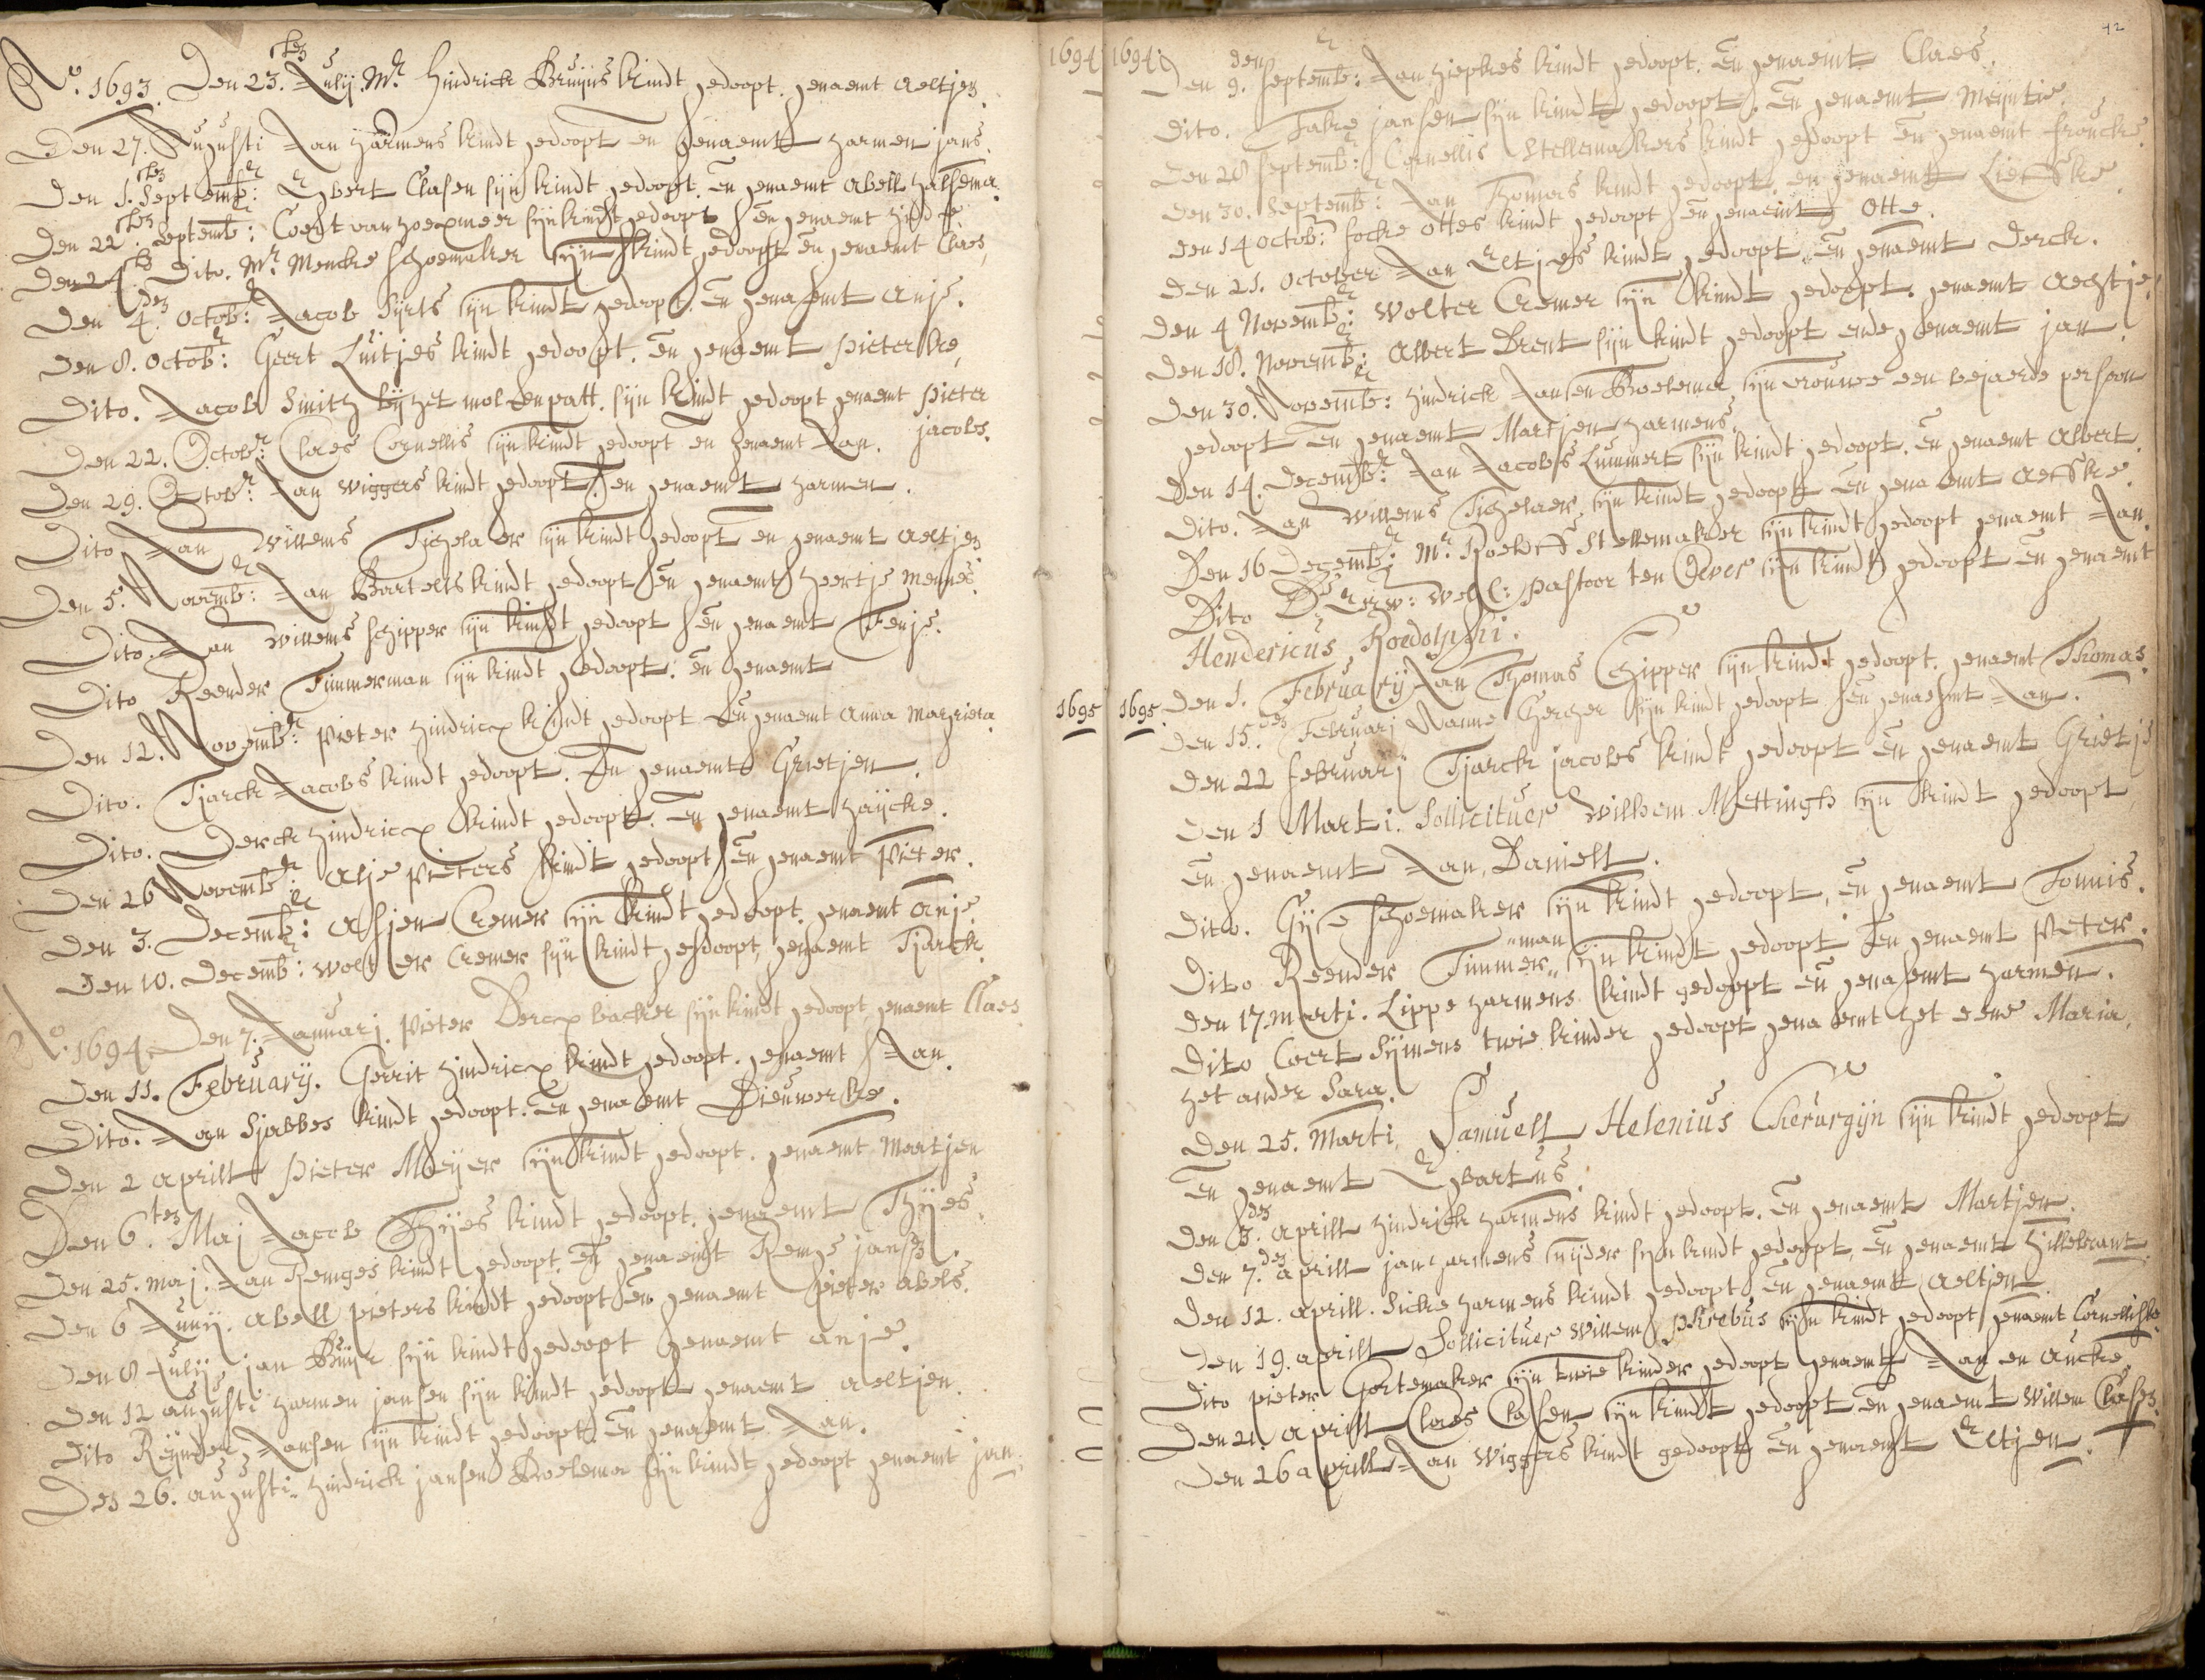 Ao. 1693. Den 23.ten Julij. Mr. Hindrick Bruijns kindt gedoopt. genaemt Aeltjen.
Den 27. Augusti Jan Harmens kindt gedoopt en genaemt Harmen jans.
Den 1.ten Septembr: Egbert Clasen sijn kindt gedoopt. en genaemt Abell Halsema.
Den 22ten. Septembr: Coert van Hoexmeer sijn kindt gedoopt en genaemt
Den 24ten Dito. Mr. Mencke Schoemaker sijn kindt gedoopt en genaemt Claes,
Den 4.den Octobr: Jacob Sijrts sijn kindt gedoopt. en genaemt Anje.
Den 8. Octobr: Geert Luitjes kindt gedoopt. en genaemt Pieterke,
Dito. Jacob Smith bij het molenpatt. sijn kindt gedoopt genaemt Pieter
jacobs.
Den 22. Octobr: Claes Cornellis sijn kindt gedoopt en genaemt Jan.
Den 29. Octobr: Jan Wiggers kindt gedoopt. en genaemt Harmen.
Dito Jan Willems Tichelaer sijn kindt gedoopt en genaemt Aeltjen
Den 5. Novembr: Jan Bartelts kindt gedoopt en genaemt Geertje Mennes.
Dito. Jan Willems Schipper sijn kindt gedoopt en genaemt Fenje.
Dito Reender Timmerman sijn kindt gedoopt. en genaemt
Den 12. Novembr: Pieter Hindricx kindt gedoopt en genaemt Anna Margriera
Dito. Tjarck Jacobs kindt gedoopt. En genaemt Grietjen.
Dito. Derck Hindricx kindt gedoopt. En genaemt Haijcke.
Den 26 Novembr: Alje Pieters kindt gedoopt en genaemt Pieter.
Den 3. Decembr: Assjen Cremer sijn kindt gedoopt. genaemt Anje.
Den 10. Decembr: Wolter Cremer sijn kindt gedoopt, genaemt Tjarck.
Ao. 1694. Den 7. Januarj. Pieter Dercx backer sijn kindt gedoopt genaemt Claes
Den 11. Februarij. Gerrit Hindricx kindt gedoopt. genaemt Jan.
Dito. Jan Sjabbes kindt gedoopt. En genaemt Dieuwerke.
Den 2 Aprill Pieter Meijer sijn kindt gedoopt. genaemt Martjen
Den 6.ten Maj Jacob Thijes kindt gedoopt. genaemt Thijes.
Den 25. Maj. Jan Remges kindt gedoopt. en genaemt Remge jansz
Den 6 Junij. Abell Pieters kindt gedoopt en genaemt Pieter Abels.
Den 8 Julij jan Buijr sijn kindt gedoopt genaemt Anje.
Den 12 Augusti Harmen jansen sijn kindt gedoopt genaemt Aeltjen.
Dito Reijnder Jansen sijn kindt gedoopt en genaemt Jan.
Den 26. Augusti. Hindrick jansen Boelema sijn kindt gedoopt genaemt jan.
1694
1695
42
1694. Den 9.den Septembr: Jan Hiepkes kindt gedoopt. En genaemt Claes.
Dito. Take jansen sijn kindt gedoopt. En genaemt Meijntie.
Den 28 Septembr: Cornellis Stellemakers kindt gedoopt en genaemt Froucke.
Den 30. Septembr: Jan Thomas kindt gedoopt. en genaemt Lieffke.
Den 14 Octobr: Focke Ottes kindt gedoopt en genaemt Otte.
Den 21. October Jan Eltjes kindt gedoopt. en genaemt Derck.
Den 4 Novembr: Wolter Cremer sijn kindt gedoopt. genaemt Aechtje.
Den 18. Novembr: Albert Drent sijn kindt gedoopt ende genaemt jan
Den 30. Novembr: Hindrick Jansen Boelema sijn vrouwe een bejaerde persoon
gedoopt en genaemt Martjen Harmens.
Den 14. Decembr: Jan Jacobs Lummert sijn kindt gedoopt. en genaemt Albert
Dito. Jan Willems Tichelaer sijn kindt gedoopt en genaemt Aeffke.
Den 16 Decembr: Mr. Roeleff Stellemaker sijn kindt gedoopt genaemt Jan.
Dito D: Eerw: Well: Pastoor ten Oever sijn kindt gedoopt en genaemt
Hendericus Roedolphi.
1695. Den 1. Februarij Jan Thomas Schipper sijn kindt gedoopt. genaemt Thomas
Den 15.den Februarj Nanne sijn kindt gedoopt en genaemt Jan.
Den 22 februarj Tjarck jacobs kindt gedoopt en genaemt Grietje
Den 1 Marti. Sollicituer Wilhem Mettingh sijn kindt gedoopt
En genaemt Jan, Daniell.
Dito. Gise Schoemaker sijn kindt gedoopt, en genaemt Tonnis.
Dito Reender Timmer"man sijn kindt gedoopt en genaemt Pieter.
Den 17. Marti. Lippe Harmens kindt gedoopt en genaemt Harmen.
Dito Coert Sijmens twie kinder gedoopt genaemt het eene Maria,
het ander Sara.
Den 25. Marti. Samuell Helenius Cherurgijn sijn kindt gedoopt
En genaemt Egbartus.
Den 3.den Aprill Hindrick Harmens kindt gedoopt. En genaemt Martjen.
Den 7.den Aprill jan Harmens snijder sijn kindt gedoopt, en genaemt Hillebrant
Den 12. Aprill. Sicke Harmens kindt gedoopt en genaemt Aeltjen
Den 19. Aprill Sollicituer Willem sijn kindt gedoopt genaemt Cornellisko
Dito Pieter Gortemaker sijn twie kinder gedoopt genaemt Jan en Aucke.
Den 21. Aprill Claes Clasen sijn kindt gedoopt en genaemt Willem Clasen.
Den 26 Aprill Jan Wiggers kindt gedoopt en genaemt Eltjen.